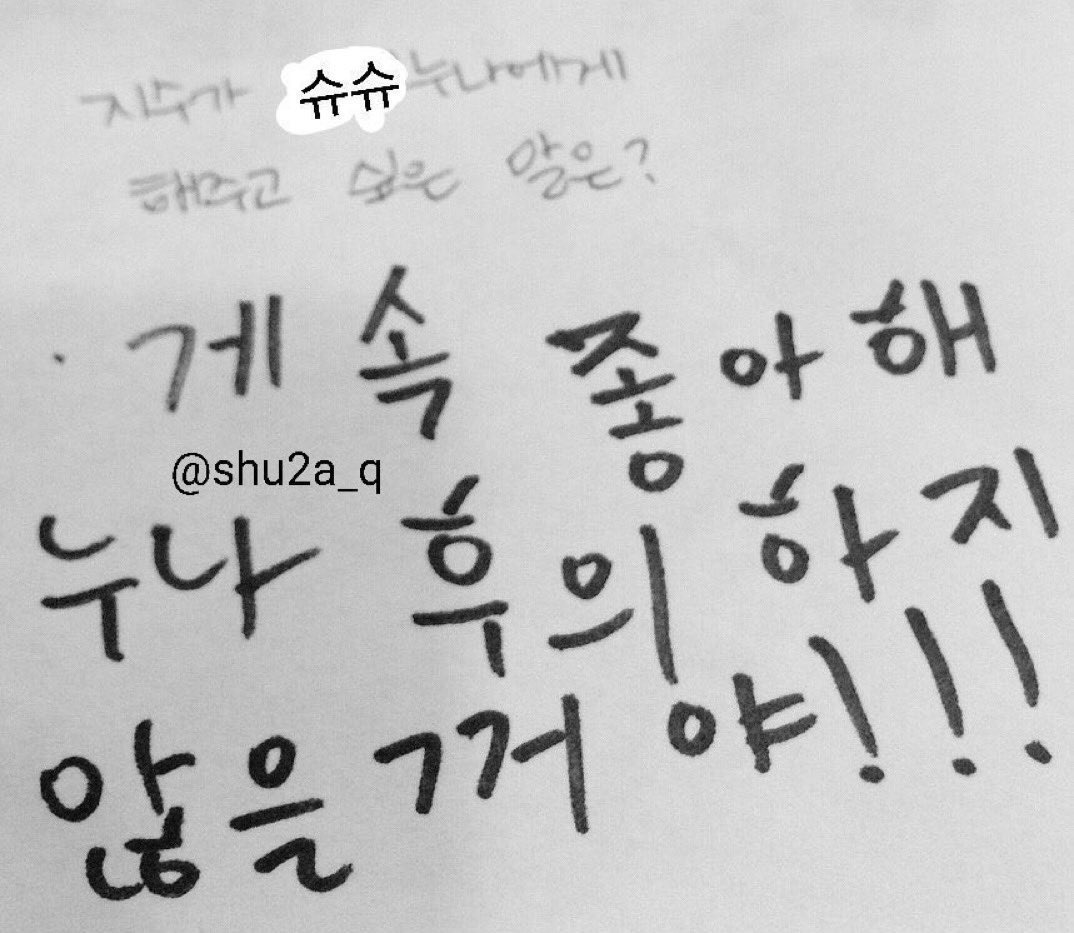 지수가 슈슈 누나에게
해주고 싶은 말은?
· 게속 좋아해
@shu2a_q
누나 후의 하지
않을꺼야!!!